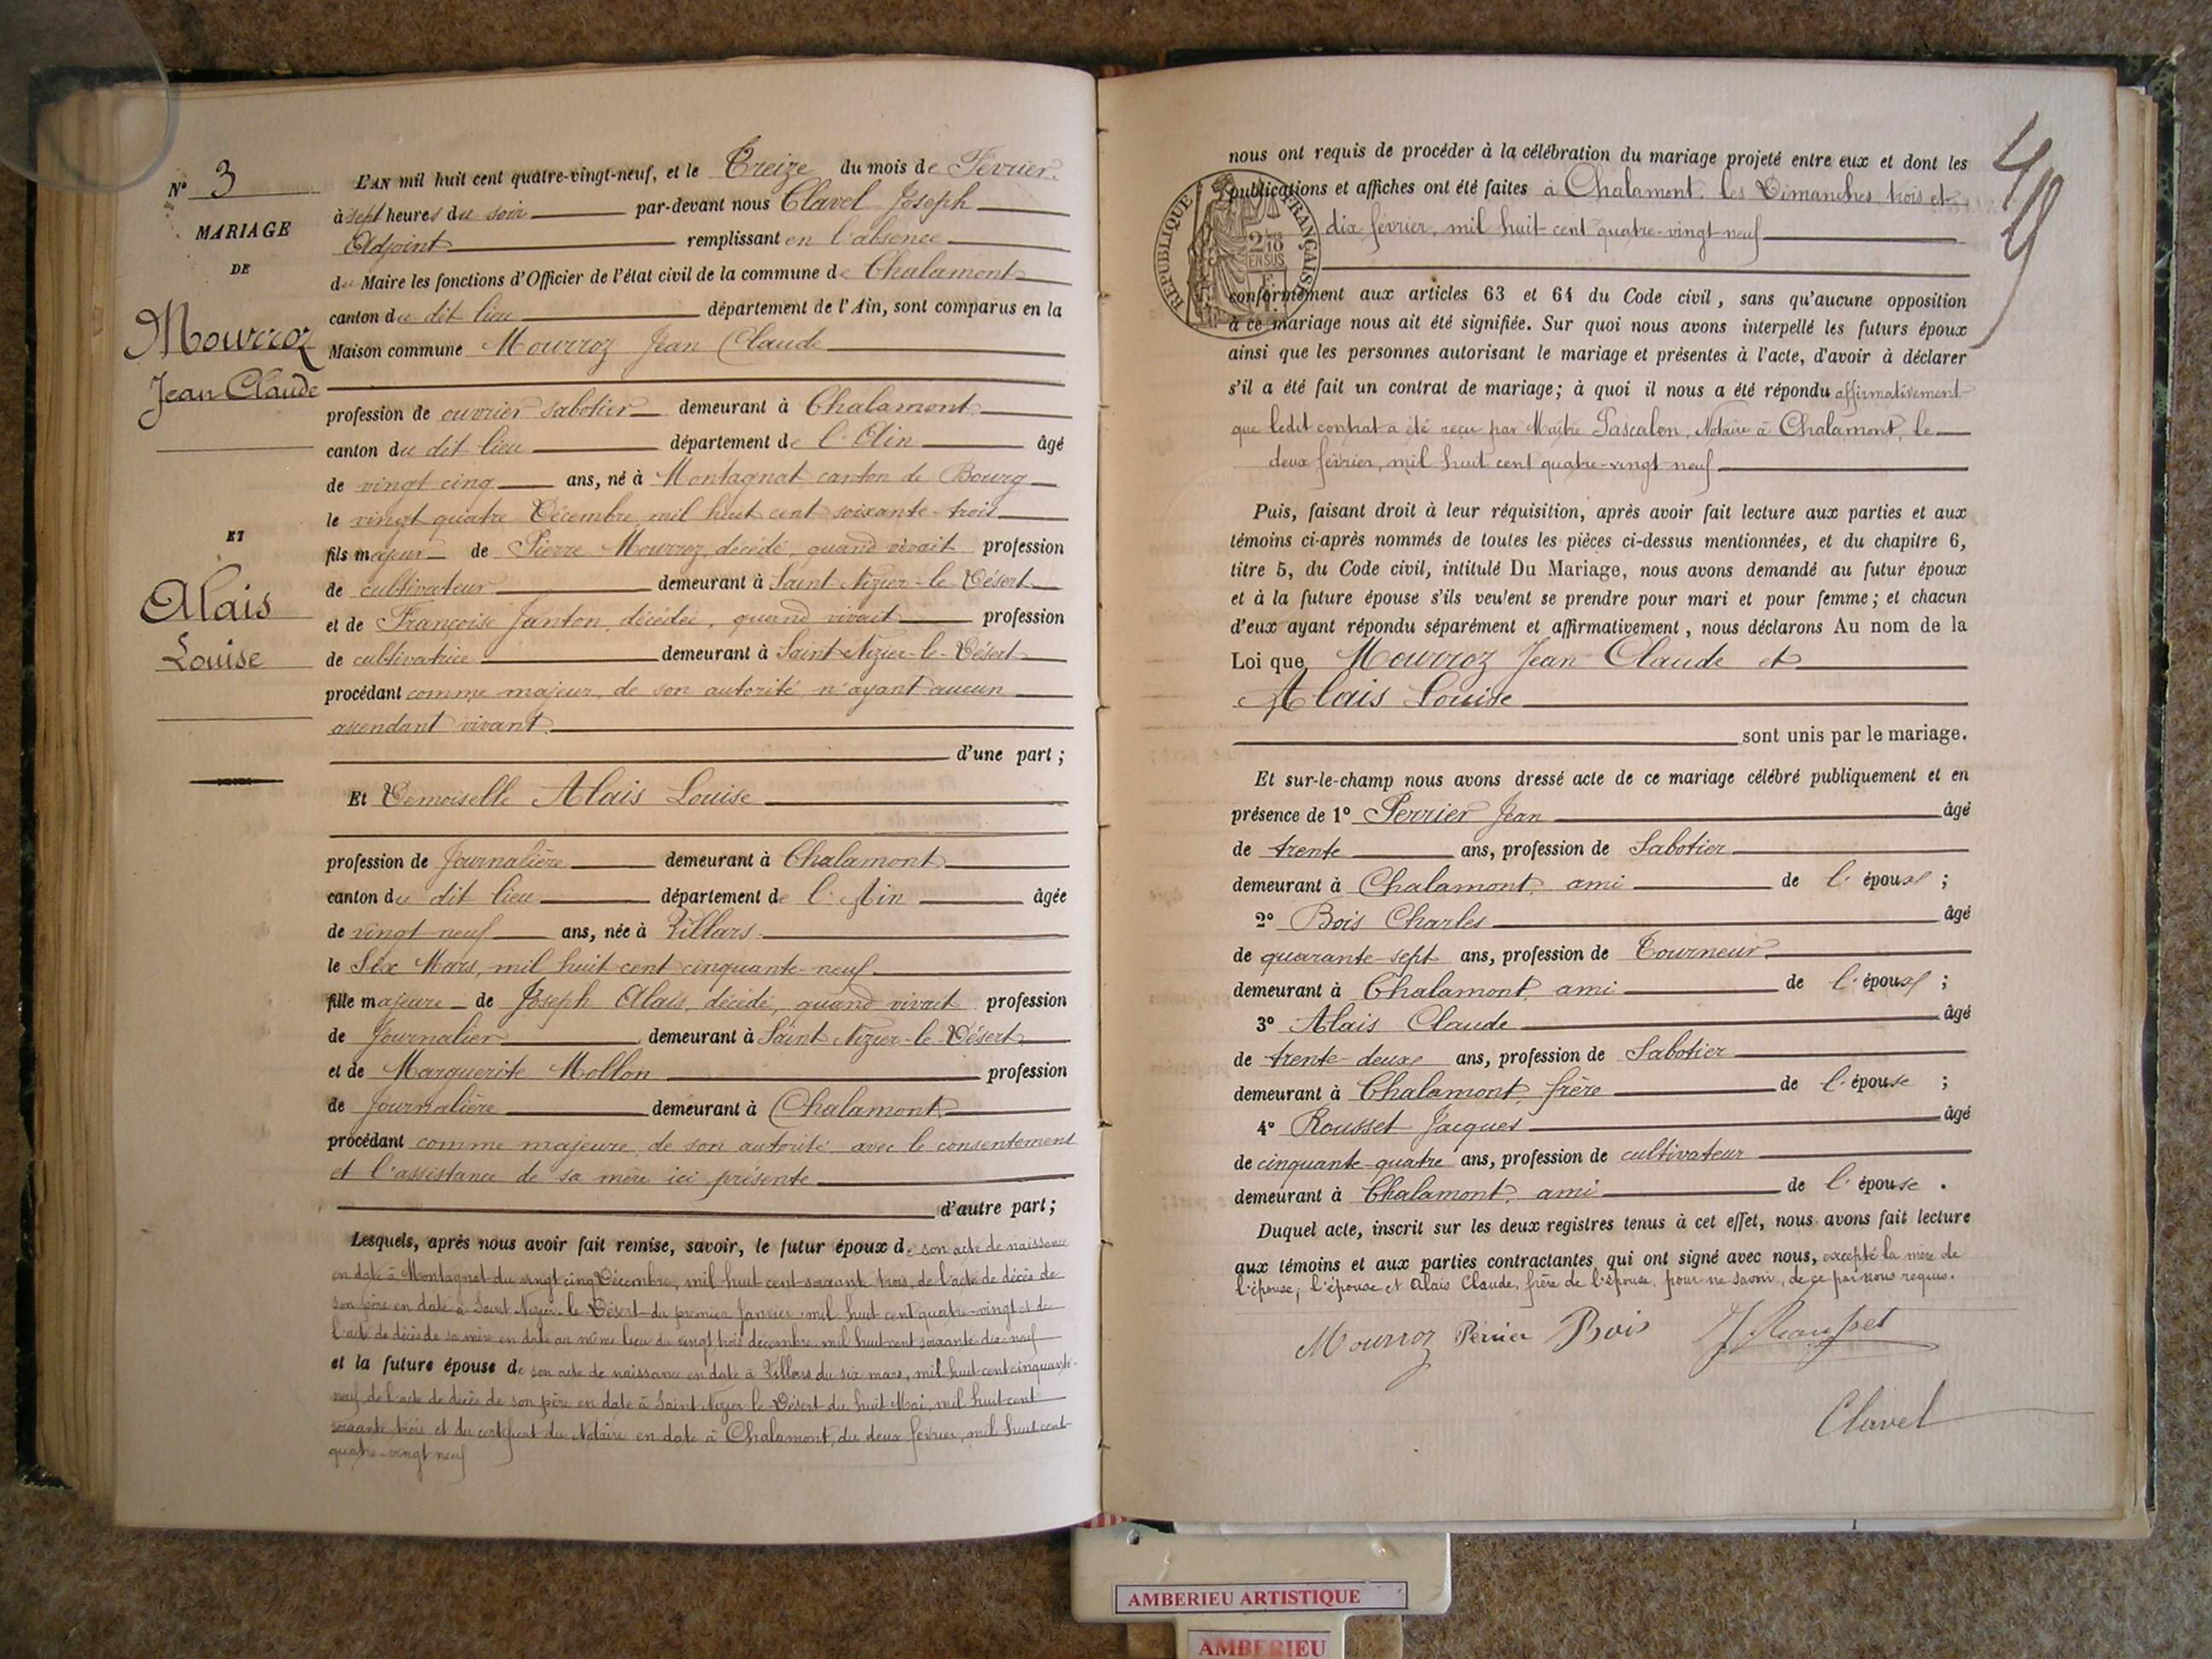 N° 3
MARIAGE
DE
Mourroz
Jean Claude
ET
Alais
Louise
L'AN mil huit cent quatre-vingt-neuf, et le Treize du mois de Février
à sept heures du soir par-devant nous Clavel Joseph
Adjoint remplissant en l'absence
du Maire les fonctions d'Officier de l'état civil de la commune de Chalamont
canton du dit lieu département de l'Ain, sont comparus en la
Maison commune Mourroz Jean Claude
profession de ouvrier sabotier demeurant à Chalamont
canton du dit lieu département de l'Ain âgé
de vingt cinq ans, né à Montagnat canton de Bourg
le vingt quatre Décembre mil huit cent soixante-trois
fils majeur de Pierre Mourroz, décédé, quand vivait profession
de cultivateur demeurant à Saint Nizier-le-Désert
et de Françoise Janton, décédée, quand vivait profession
de cultivatrice demeurant à Saint Nizier-le-Désert
procédant comme majeur, de son autorité n'ayant aucun
ascendant vivant
d'une part ;
Et Demoiselle Alais Louise
profession de Journalière demeurant à Chalamont
canton du dit lieu département de l'Ain âgée
de vingt neuf ans, née à Villars
le Six Mars, mil huit cent cinquante-neuf
fille majeure de Joseph Alais, décédé, quand vivait profession
de Journalier demeurant à Saint Nizier-le-Désert
et de Marguerite Mollon profession
de journalière demeurant à Chalamont
procédant comme majeure, de son autorité avec le consentement
et l'assistance de sa mère ici présente
d'autre part ;
Lesquels, après nous avoir fait remise, savoir, le futur époux de son acte de naissance
en date à Montagnat du vingt cinq Décembre, mil huit cent soixante trois, de l'acte de décès de
son père en date à Saint Nizier le Désert du premier Janvier mil huit cent quatre-vingt et de
l'acte de décès de sa mère en date au même lieu du vingt trois décembre mil huit cent soixante-dix-neuf
et la future épouse de son acte de naissance en date à Villars du six mars, mil huit cent cinquante-
neuf, de l'acte de décès de son père en date à Saint Nizier le Désert du huit Mai, mil huit cent
soixante trois et du certificat du Notaire en date à Chalamont, du deux février, mil huit cent
quatre-vingt neuf
49
RÉPUBLIQUE FRANÇAISE
2/10
EN SUS
nous ont requis de procéder à la célébration du mariage projeté entre eux et dont les
publications et affiches ont été faites à Chalamont les Dimanches trois et
dix février, mil huit-cent quatre-vingt-neuf
conformément aux articles 63 et 64 du Code civil, sans qu'aucune opposition
à ce mariage nous ait été signifiée. Sur quoi nous avons interpellé les futurs époux
ainsi que les personnes autorisant le mariage et présentes à l'acte, d'avoir à déclarer
s'il a été fait un contrat de mariage ; à quoi il nous a été répondu affirmativement
que ledit contrat a été reçu par Maître Pascalon, Notaire à Chalamont, le
deux février, mil huit cent quatre-vingt neuf
Puis, faisant droit à leur réquisition, après avoir fait lecture aux parties et aux
témoins ci-après nommés de toutes les pièces ci-dessus mentionnées, et du chapitre 6,
titre 5, du Code civil, intitulé Du Mariage, nous avons demandé au futur époux
et à la future épouse s'ils veulent se prendre pour mari et pour femme ; et chacun
d'eux ayant répondu séparément et affirmativement, nous déclarons Au nom de la
Loi que Mourroz Jean Claude et
Alais Louise
sont unis par le mariage.
Et sur-le-champ nous avons dressé acte de ce mariage célébré publiquement et en
présence de 1° Perrier Jean âgé
de trente ans, profession de Sabotier
demeurant à Chalamont, ami de l'épouse ;
2° Bois Charles âgé
de quarante-sept ans, profession de Tourneur
demeurant à Chalamont, ami de l'épouse ;
3° Alais Claude âgé
de trente-deux ans, profession de Sabotier
demeurant à Chalamont, frère de l'épouse ;
4° Rousset Jacques âgé
de cinquante-quatre ans, profession de cultivateur
demeurant à Chalamont, ami de l'épouse.
Duquel acte, inscrit sur les deux registres tenus à cet effet, nous avons fait lecture
aux témoins et aux parties contractantes qui ont signé avec nous, excepté la mère de
l'épouse, l'épouse et Alais Claude, frère de l'épouse, pour ne savoir, de ce par nous requis.
Mourroz Perrier Bois J Rousset
Clavel
AMBERIEU ARTISTIQUE
AMBERIEU